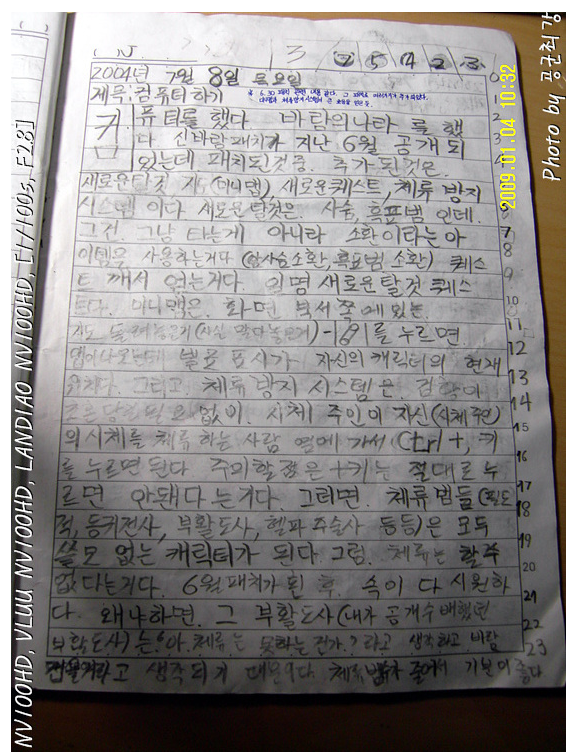 ( ) N. 13 ② ⑤ ④ ② ③
2004년 7월 8일 목요일
제목: 컴퓨터하기
컴퓨터를 했다 바람의나라 를 했
다 신바람 패치가 지난 6월 공개되
있는데 패치된것중. 추가 된것은.
새로운탈것 지 (미니맵), 새로운퀘스트, 체류 방지
시스템 이다. 새로운 탈것은. 사슴, 흑표범 인데.
그전. 그냥 타는게 아니라 소환이라는아
이템을 사용하는거다 (사슴소환, 흑표범 소환) 퀘스
트 깨서 얻는거다. 일명 새로운탈것 퀘스
트다. 미니맵은. 화면 북서 쪽에 있는.
지도 누르면.
표시가 자신의 캐릭터의 현재
위치다. 그리고 체류 방지 시스템은.
없이. 시체 주인이 자신(시체 주인)
의시체를 체류 하는 사람 옆에 가서 (Ctrl +, 키
를 누르면 된다 주의할점은 +키는 절대로 누
르면 안돼다는거다 그러면. 체류범들(
적, 둥커전사, 부활도사, 헬파 주술사 등등)은 모두
쓸모 없는 캐릭터가 된다. 그럼. 체류는 할수
없다는거다. 6월패치가된 후. 속이 다 시원하
다. 왜냐하면. 그 부활도사(내가 공개수배했던
부활도사)는 "아. 체류는 못하는건가?" 라고 생각하고.
라고 생각되기 때문이다. 체류범가 줄어서 기분이 좋다
2
3
4
6
7
8
9
10
11
12
13
14
15
16
17
18
19
20
21
22
23
2009.01.04 10:32
Photo by 공군최강
NV100HD, VLUU NV100HD, LANDIAO NV100HD, [1/100s, F2.8]